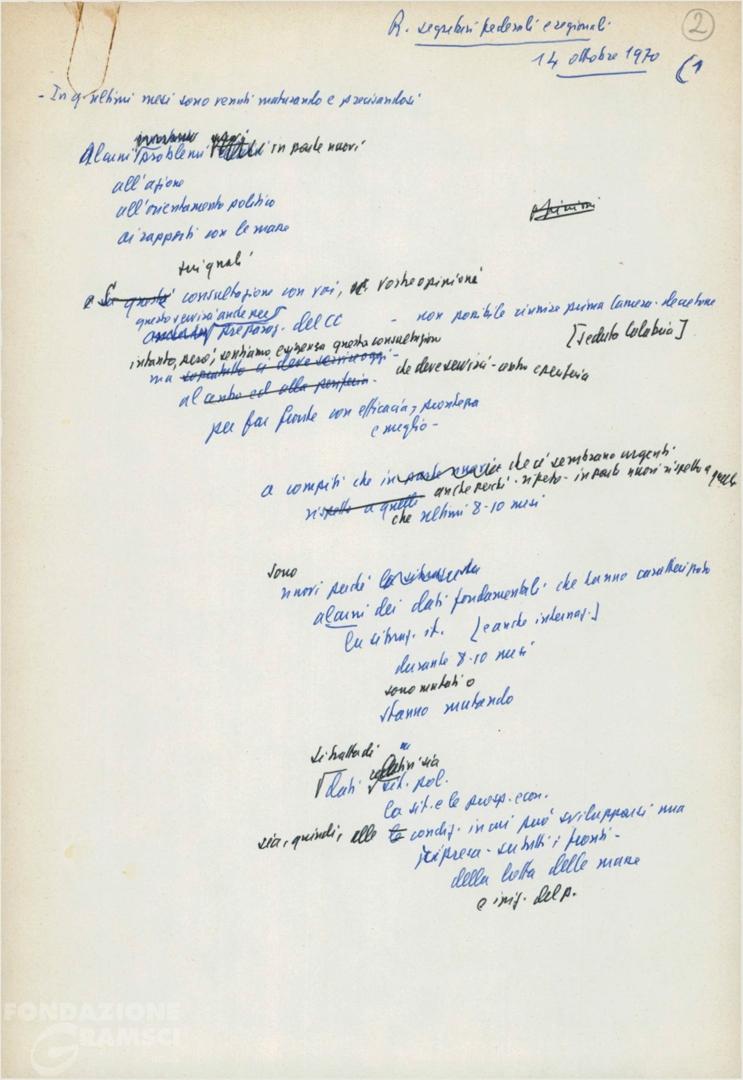 R. segretari federali e regionali
2
14 ottobre 1970
(1
- In q. ultimi mesi sono venuti maturando e precisandosi
alcuni problemi in parte nuovi
all'azione
all'orientamento politico
ai rapporti con le masse
opinioni
sui quali
e La questa consultazione con voi, vostre opinioni
questo servirà anche per
preparaz. del CC - non possibile riunire prima Camera.
intanto, però, sentiamo esigenza questa consultazione
[seduto Calabria]
ma soprattutto ci deve servire oggi -
che deve servirci - centro e periferia
al centro ed alla periferia.
per far fronte con efficacia, prontezza
e meglio -
a compiti che in parte nuovi che ci sembrano urgenti
rispetto a quelli anche perché - ripeto - in parte nuovi rispetto a quelli
che ultimi 8-10 mesi
sono
nuovi perché la situazione
alcuni dei dati fondamentali che hanno caratterizzato
la situaz. it. [e anche internaz.]
durante 8-10 mesi
sono mutati o
stanno mutando
si tratta di
dati relativi sia
sit. pol.
la sit. e le prosp. econ.
sia, quindi, alle le condiz. in cui può svilupparsi una
ripresa - su tutti i fronti -
della lotta delle masse
e iniz. del p.
FONDAZIONE
GRAMSCI